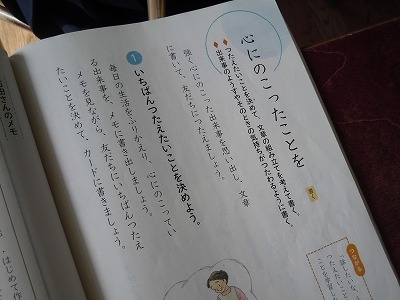 心にのこったことを
書く
◆つたえたいことを決めて、文章の組み立てを考えて書く。
◆出来事のようすやそのときの気持ちがつたわるように書く。
強く心にのこった出来事を思い出し、文章
に書いて、友だちにつたえましょう。
1 いちばんつたえたいことを決めよう。
毎日の生活をふりかえり、心にのこってい
る出来事を、メモに書き出しましょう。
メモを見ながら、友だちにいちばんつたえ
たいことを決めて、カードに書きましょう。
田さんのメモ
はじめて作
つながる